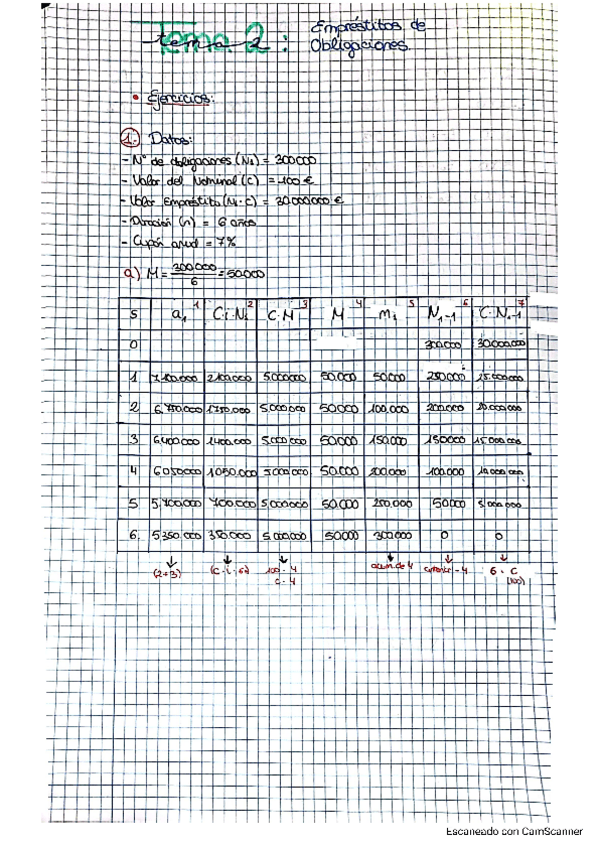 Tema 2: Empréstitos de
Obligaciones.
• Ejercicios:
1. Datos:
- Nº de obligaciones (N₁) = 300000
- Valor del Nominal (C) = 100 €
- Valor Empréstito (N₁·C) = 30000000 €
- Duración (n) = 6 años
- Cupón anual = 7%
a) M = 300.000 / 6 = 50.000
S a₁ ¹ C·i·N₁ ² C·M ³ M ⁴ m₁ ⁵ N₁₋₁ ⁶ C·N₁₋₁ ⁷
0 300.000 30000000
1 7.100.000 2100.000 5.000.000 50.000 50.000 250.000 25.000.000
2 6.750.000 1750.000 5.000.000 50.000 100.000 200.000 20.000.000
3 6.400.000 1.400.000 5.000.000 50.000 150.000 150000 15.000.000
4 6050.000 1050.000 5000000 50.000 200.000 100.000 10.000.000
5 5.700.000 700.000 5000000 50.000 250.000 50000 5.000.000
6. 5350.000 350.000 5.000.000 50000 300.000 0 0
(2+3) (C·i·6) 100·4 acum. de 4 anterior-4 6·C
C·4 (100)
Escaneado con CamScanner